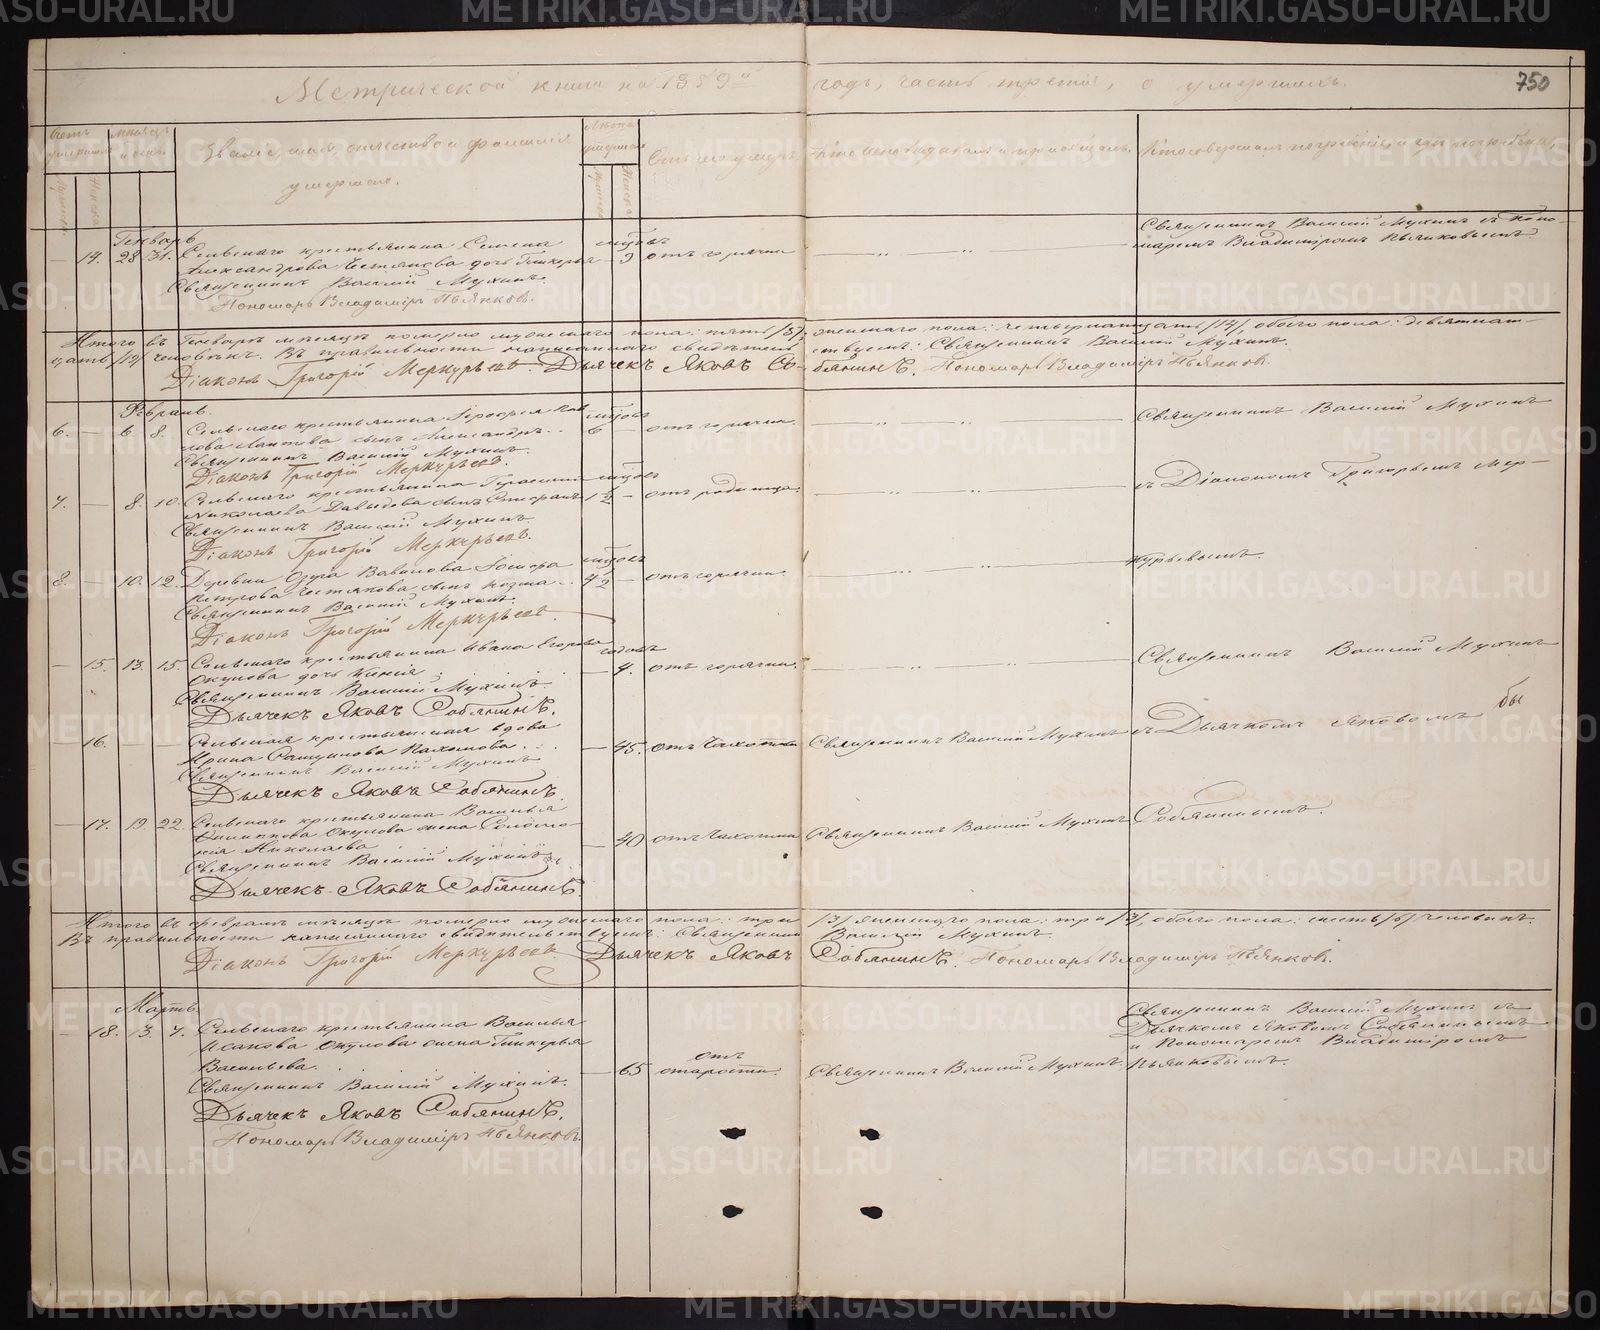 Метрической книги на 1859й годъ, часть третія, о умершихъ.
750
Счетъ умершихъ
Мѣсяцъ и день
Званіе, имя, отчество и фамилія умершаго.
Лѣта умершаго
Отъ чего умеръ
Кто исповѣдывалъ и пріобщалъ.
Кто совершалъ погребеніе и гдѣ погребены,
Генварь
14. 28 31. Сельскаго крестьянина Семена мѣсяцъ
Александрова дочь Гликерья 9 отъ горячки
Священникъ Василій Мухинъ.
Пономарь Владиміръ Пьянковъ.
Священникъ Василій Мухинъ съ Поно-
маремъ Владиміромъ Пьянковымъ.
Итого въ Генварѣ мѣсяцѣ померло мужескаго пола: пять /5/, женскаго пола: четырнатцать /14/, обоего пола: девятнат-
цать /19/ человѣкъ. Въ правильности написаннаго свидѣтельствуемъ: Священникъ Василій Мухинъ.
Діаконъ Григорій Меркурьевъ. Дьячекъ Яковъ Собянинъ. Пономарь Владиміръ Пьянковъ.
Февраль.
6. 6 8. Сельскаго крестьянина
сынъ Александръ. 6 отъ горячки.
Священникъ Василій Мухинъ.
Діаконъ Григорій Меркурьевъ.
Священникъ Василій Мухинъ
7. 8. 10. Сельскаго крестьянина
Николаева Давыдова сынъ Стефанъ 1 1/2 отъ родимца.
Священникъ Василій Мухинъ.
Діаконъ Григорій Меркурьевъ.
съ Діакономъ Григорьемъ Мер-
8. 10. 12. Деревни Вавилова
Петрова сынъ Козма 4 1/2 отъ горячки.
Священникъ Василій Мухинъ.
Діаконъ Григорій Меркурьевъ.
курьевымъ.
15. 13. 15. Сельскаго крестьянина Ивана Егорова годовъ
Окулова дочь 4. отъ горячки.
Священникъ Василій Мухинъ.
Дьячекъ Яковъ Собянинъ.
Священникъ Василій Мухинъ
16. Сельская крестьянская вдова
Ирина Пахомова. 45. отъ чахотки Священникъ Василій Мухинъ
Священникъ Василій Мухинъ
Дьячекъ Яковъ Собянинъ.
съ Дьячкомъ Яковомъ
бы
17. 19 22. Сельскаго крестьянина Василья
Окулова жена Соломо-
нія Николаева 40 отъ чахотки Священникъ Василій Мухинъ
Священникъ Василій Мухинъ
Дьячекъ Яковъ Собянинъ
Собянинымъ.
Итого въ февралѣ мѣсяцѣ померло мужескаго пола: три /3/ женскаго пола: три /3/, обоего пола: шесть /6/ человѣкъ.
Въ правильности написаннаго свидѣтельствуемъ: Священникъ Василій Мухинъ.
Діаконъ Григорій Меркурьевъ. Дьячекъ Яковъ Собянинъ. Пономарь Владиміръ Пьянковъ.
Мартъ.
18. 3. 7. Сельскаго крестьянина Василья
Исакова Окулова жена Гликерья
Васильева. 65 отъ старости. Священникъ Василій Мухинъ.
Священникъ Василій Мухинъ.
Дьячекъ Яковъ Собянинъ.
Пономарь Владиміръ Пьянковъ.
Священникъ Василій Мухинъ съ
Дьячкомъ Яковомъ Собянинымъ
и Пономаремъ Владиміромъ
Пьянковымъ.
METRIKI.GASO-URAL.RU